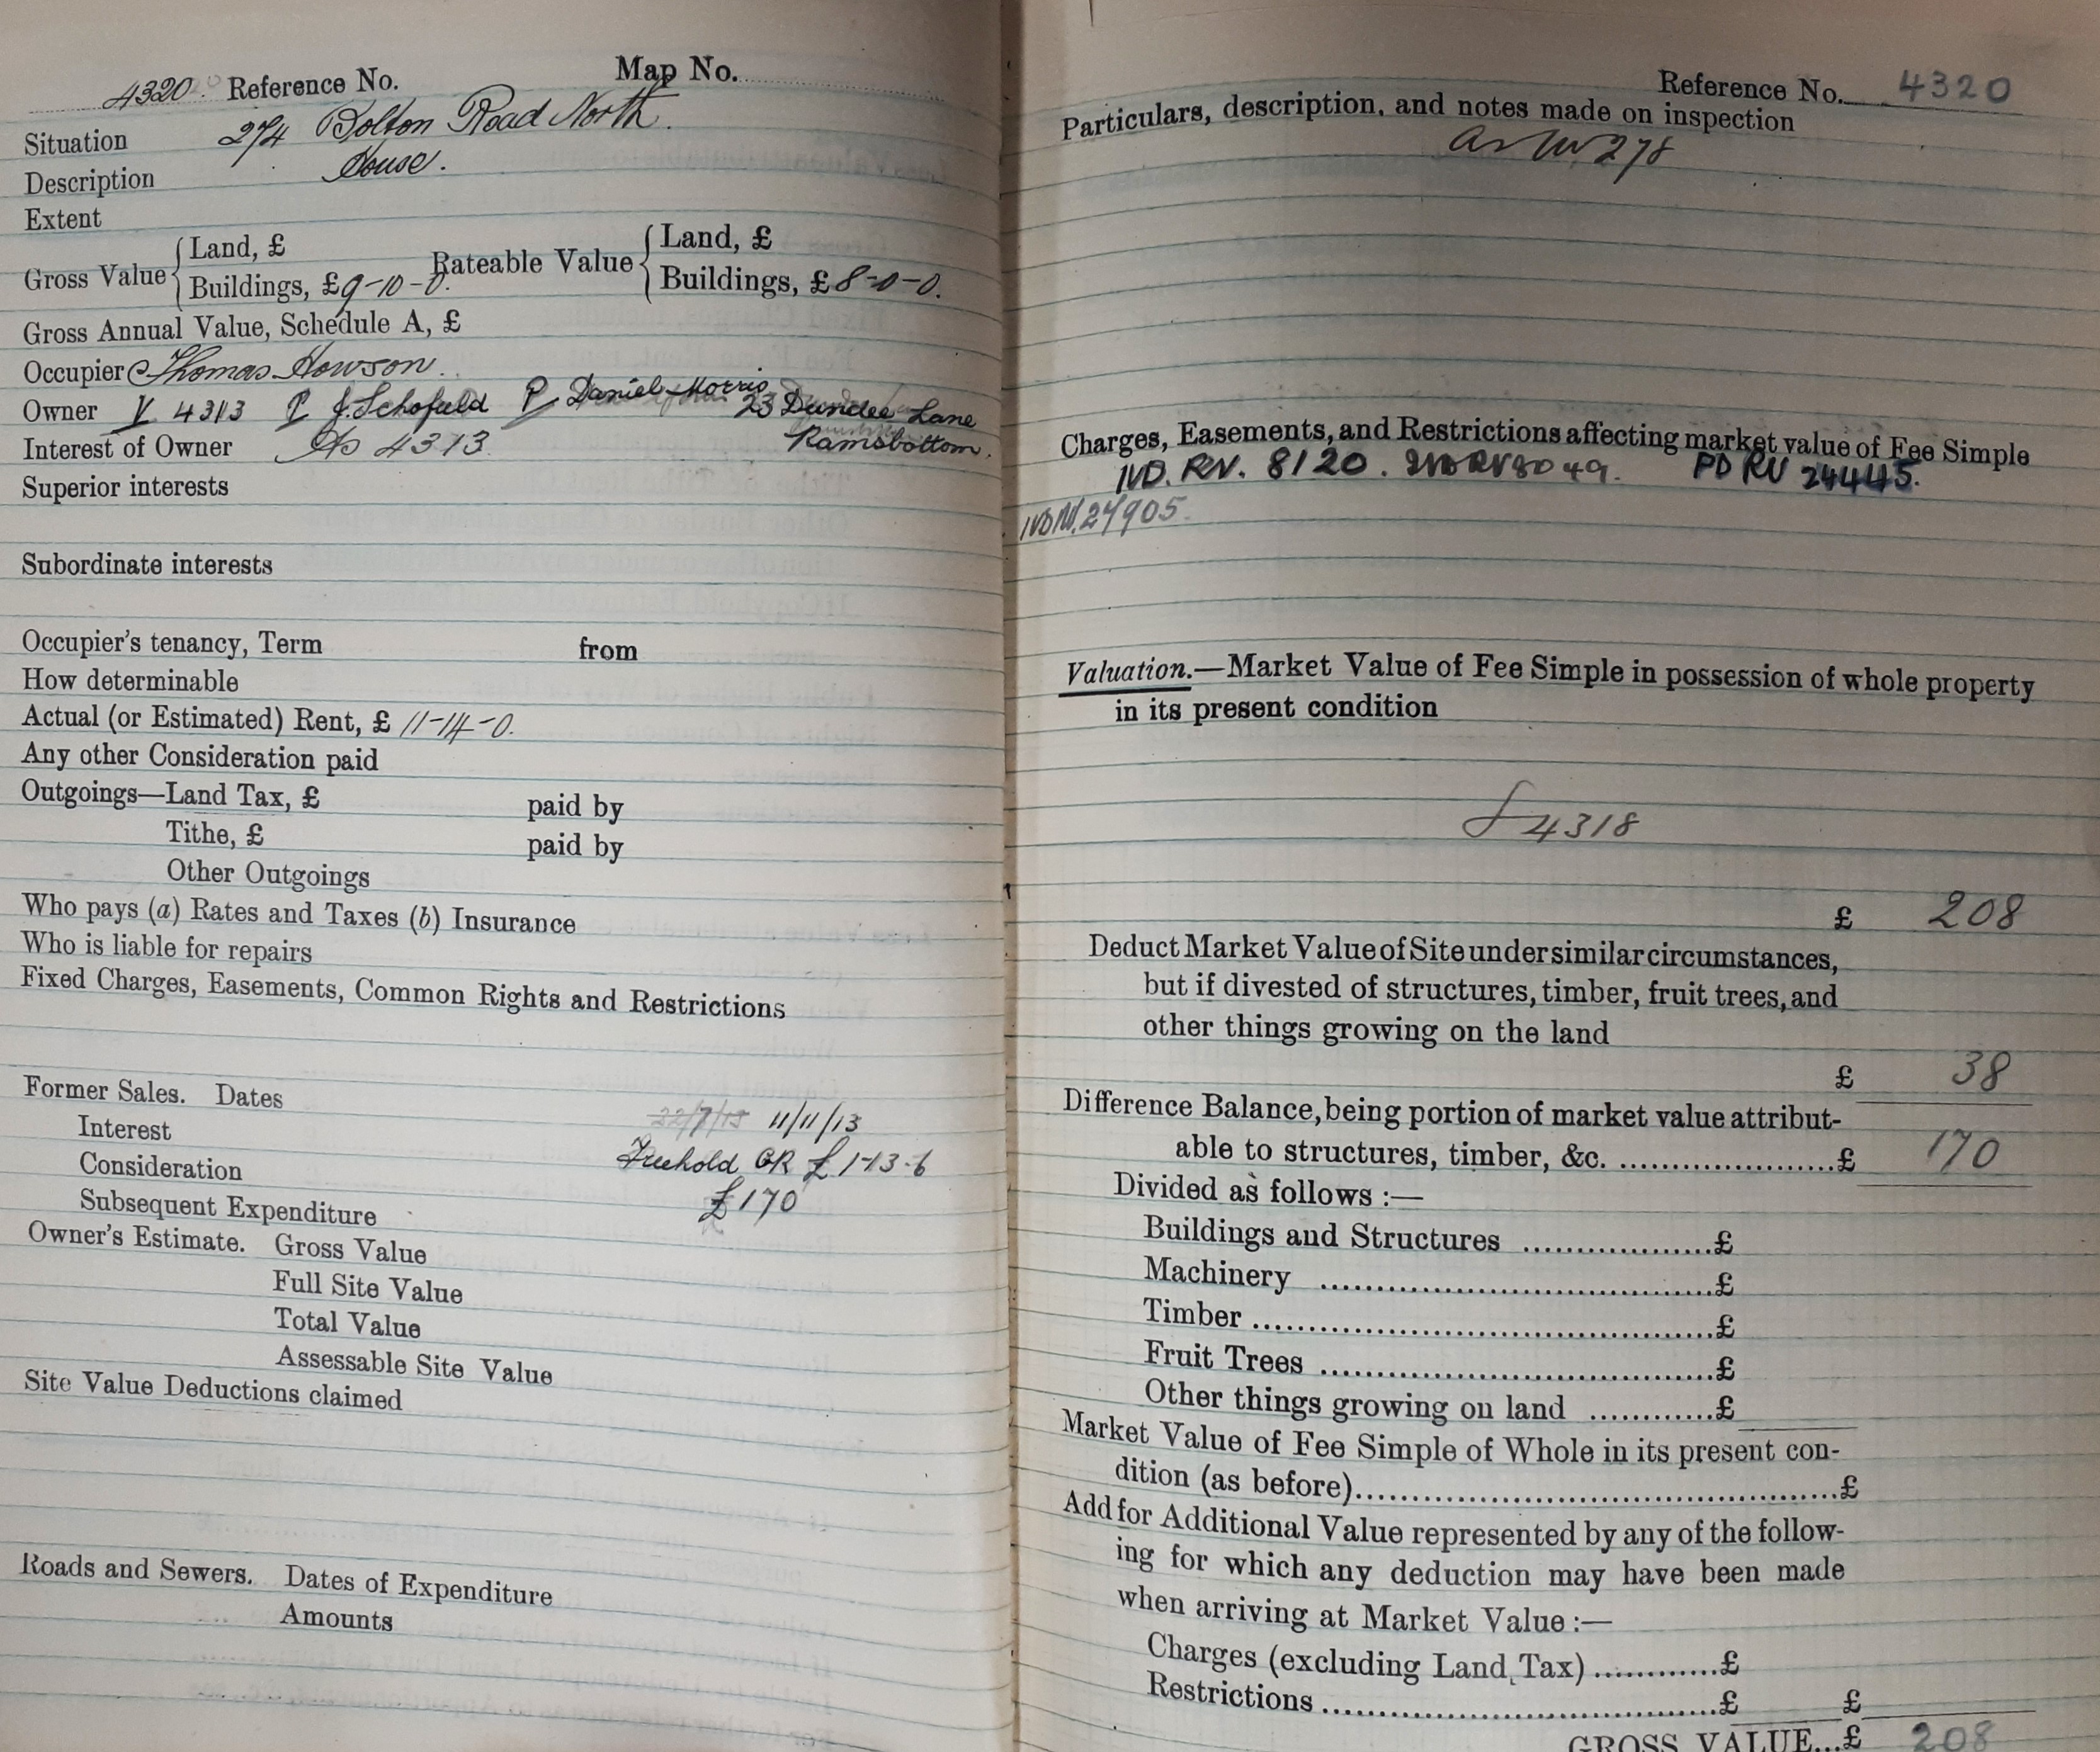 4320 Reference No. Map No.
Situation 274 Bolton Road North.
Description House.
Extent
Gross Value { Land, £ Rateable Value { Land, £
Buildings, £ 9-10-0. Buildings, £ 8-0-0.
Gross Annual Value, Schedule A, £
Occupier Thomas Howson.
Owner V 4313 P J. Schofield P Daniel Morris 23 Dundee Lane
Interest of Owner As 4313 Ramsbottom.
Superior interests
Subordinate interests
Occupier's tenancy, Term from
How determinable
Actual (or Estimated) Rent, £ 11-14-0.
Any other Consideration paid
Outgoings—Land Tax, £ paid by
Tithe, £ paid by
Other Outgoings
Who pays (a) Rates and Taxes (b) Insurance
Who is liable for repairs
Fixed Charges, Easements, Common Rights and Restrictions
Former Sales. Dates 22/7/13 11/11/13
Interest Freehold GR £1-13-6
Consideration £170
Subsequent Expenditure
Owner's Estimate. Gross Value
Full Site Value
Total Value
Assessable Site Value
Site Value Deductions claimed
Roads and Sewers. Dates of Expenditure
Amounts
Reference No. 4320
Particulars, description, and notes made on inspection
as No 278
Charges, Easements, and Restrictions affecting market value of Fee Simple
IVD. RV. 8120. PD RV 24445.
27905.
Valuation.—Market Value of Fee Simple in possession of whole property
in its present condition
4318
£ 208
Deduct Market Value of Site under similar circumstances,
but if divested of structures, timber, fruit trees, and
other things growing on the land
£ 38
Difference Balance, being portion of market value attribut-
able to structures, timber, &c. ......................£ 170
Divided as follows :—
Buildings and Structures ...................£
Machinery .......................................£
Timber ..............................................£
Fruit Trees .......................................£
Other things growing on land ............£
Market Value of Fee Simple of Whole in its present con-
dition (as before)..................................................£
Add for Additional Value represented by any of the follow-
ing for which any deduction may have been made
when arriving at Market Value :—
Charges (excluding Land Tax) ............£
Restrictions .......................................£ £
GROSS VALUE...£ 208